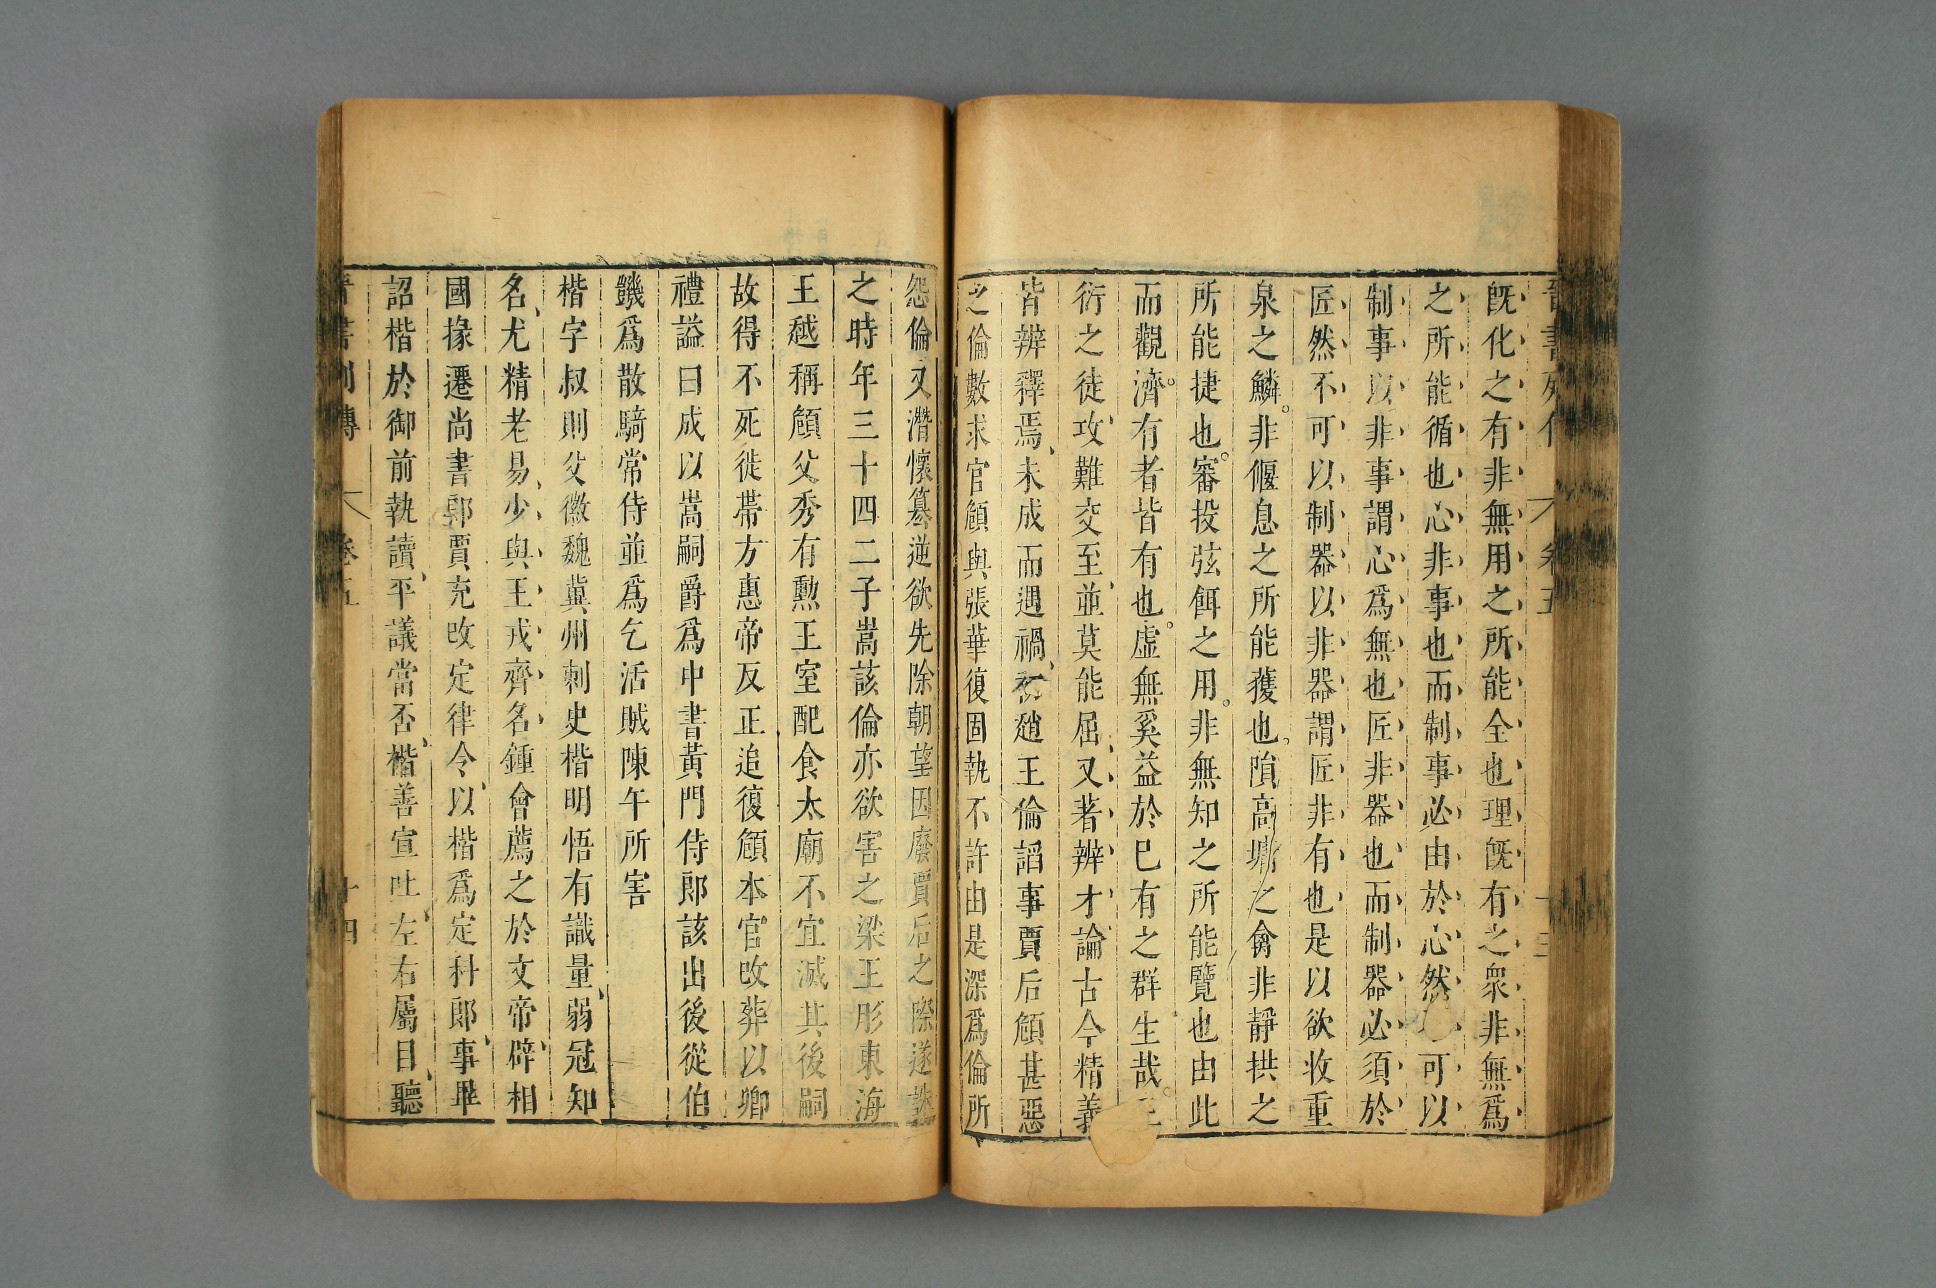 晉書列傳 卷五 十三
旣化之有非無用之所能全也理旣有之衆非無爲
之所能循也心非事也而制事必由於心然 可以
制事以非事謂心爲無也匠非器也而制器必須於
匠然不可以制器以非器謂匠非有也是以欲收重
泉之鱗非偃息之所能獲也隕高墉之禽非靜拱之
所能捷也審投弦餌之用非無知之所能覽也由此
而觀濟有者皆有也虛無奚益於巳有之群生哉王
衍之徒攻難交至並莫能屈又著辨才論古今精義
皆辨釋焉未成而遇禍初趙王倫謟事賈后頠甚惡
之倫數求官頠與張華復固執不許由是深爲倫所
怨倫又潛懷簒逆欲先除朝望因廢賈后之際遂誅
之時年三十四二子嵩該倫亦欲害之梁王肜東海
王越稱頠父秀有勲王室配食太廟不宜滅其後嗣
故得不死徙帶方惠帝反正追復頠本官改葬以卿
禮謚曰成以嵩嗣爵爲中書黃門侍郎該出後從伯
嶷爲散騎常侍並爲乞活賊陳午所害
楷字叔則父徽魏冀州刺史楷明悟有識量弱冠知
名尤精老易少與王戎齊名鍾會薦之於文帝辟相
國掾遷尚書郎賈充改定律令以楷爲定科郎事畢
詔楷於御前執讀平議當否楷善宣吐左右屬目聽
晉書列傳 卷五 十四